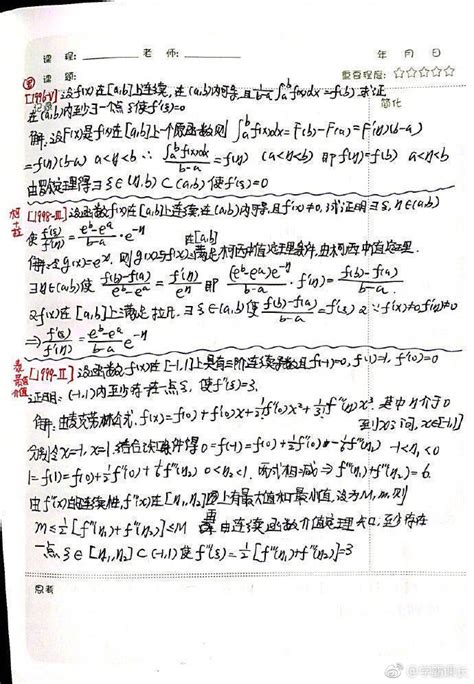 课 程: 老 师: 年 月 日
课 题: 重要程度: ☆☆☆☆☆
简化
[1996-V] 设f(x)在[a,b]上连续,在(a,b)内可导,且1/(b-a) ∫_a^b f(x)dx=f(b) 求证
在(a,b)内至少一个点ξ使f'(ξ)=0
解:设F(x)是f(x)在[a,b]上一个原函数 则 ∫_a^b f(x)dx=F(b)-F(a)=F'(η)(b-a)
=f(η)(b-a) a<η<b ∴ ∫_a^b f(x)dx/(b-a) =f(η) (a<η<b) 即f(η)=f(b) a<η<b
由罗尔定理得∃ξ∈(η,b)⊂(a,b)使f'(ξ)=0
柯
[1998-III] 设函数f(x)在[a,b]上连续,在(a,b)内可导,且f'(x)≠0,试证明∃ξ,η∈(a,b)
使 f'(ξ)/f'(η) = (e^b-e^a)/(b-a) · e^-η
在[a,b]
解:令g(x)=e^x,则g(x)与f(x)上满足柯西中值定理条件,由柯西中值定理.
∃η∈(a,b)使 (f(b)-f(a))/(e^b-e^a) = f'(η)/e^η 即 (e^b-e^a)e^-η/(b-a) · f'(η)= (f(b)-f(a))/(b-a)
又f(x)在[a,b]上满足拉几.∃ξ∈(a,b)使 (f(b)-f(a))/(b-a) =f'(ξ) ∵f'(x)≠0,f'(η)≠0
⇒ f'(ξ)/f'(η) = (e^b-e^a)/(b-a) · e^-η
[1999-II] 设函数f(x)在[-1,1]上具有三阶连续导数且f(-1)=0,f(1)=1,f'(0)=0
证明:(-1,1)内至少存在一点ξ,使f'''(ξ)=3.
解:由麦克劳林公式,f(x)=f(0)+f'(0)x+1/2! f''(0)x²+1/3! f'''(η)x³.其中η介于0
到x之间,x∈[-1,1]
分别令x=-1,x=1,结合 条件得0=f(-1)=f(0)+1/2 f''(0)-1/6 f'''(η₁) -1<η₁<0
1=f(1)=f(0)+1/2 f''(0)+1/6 f'''(η₂) 0<η₂<1.两式相减⇒f'''(η₁)+f'''(η₂)=6.
由f'''(x)的连续性,f'''(x)在[η₁,η₂]上有最大值和最小值,设为M,m,则
m≤1/2[f'''(η₁)+f'''(η₂)]≤M 再由连续函数介值定理知,至少存在
一点ξ∈[η₁,η₂]⊂(-1,1)使f'''(ξ)=1/2[f'''(η₁)+f'''(η₂)]=3
思考